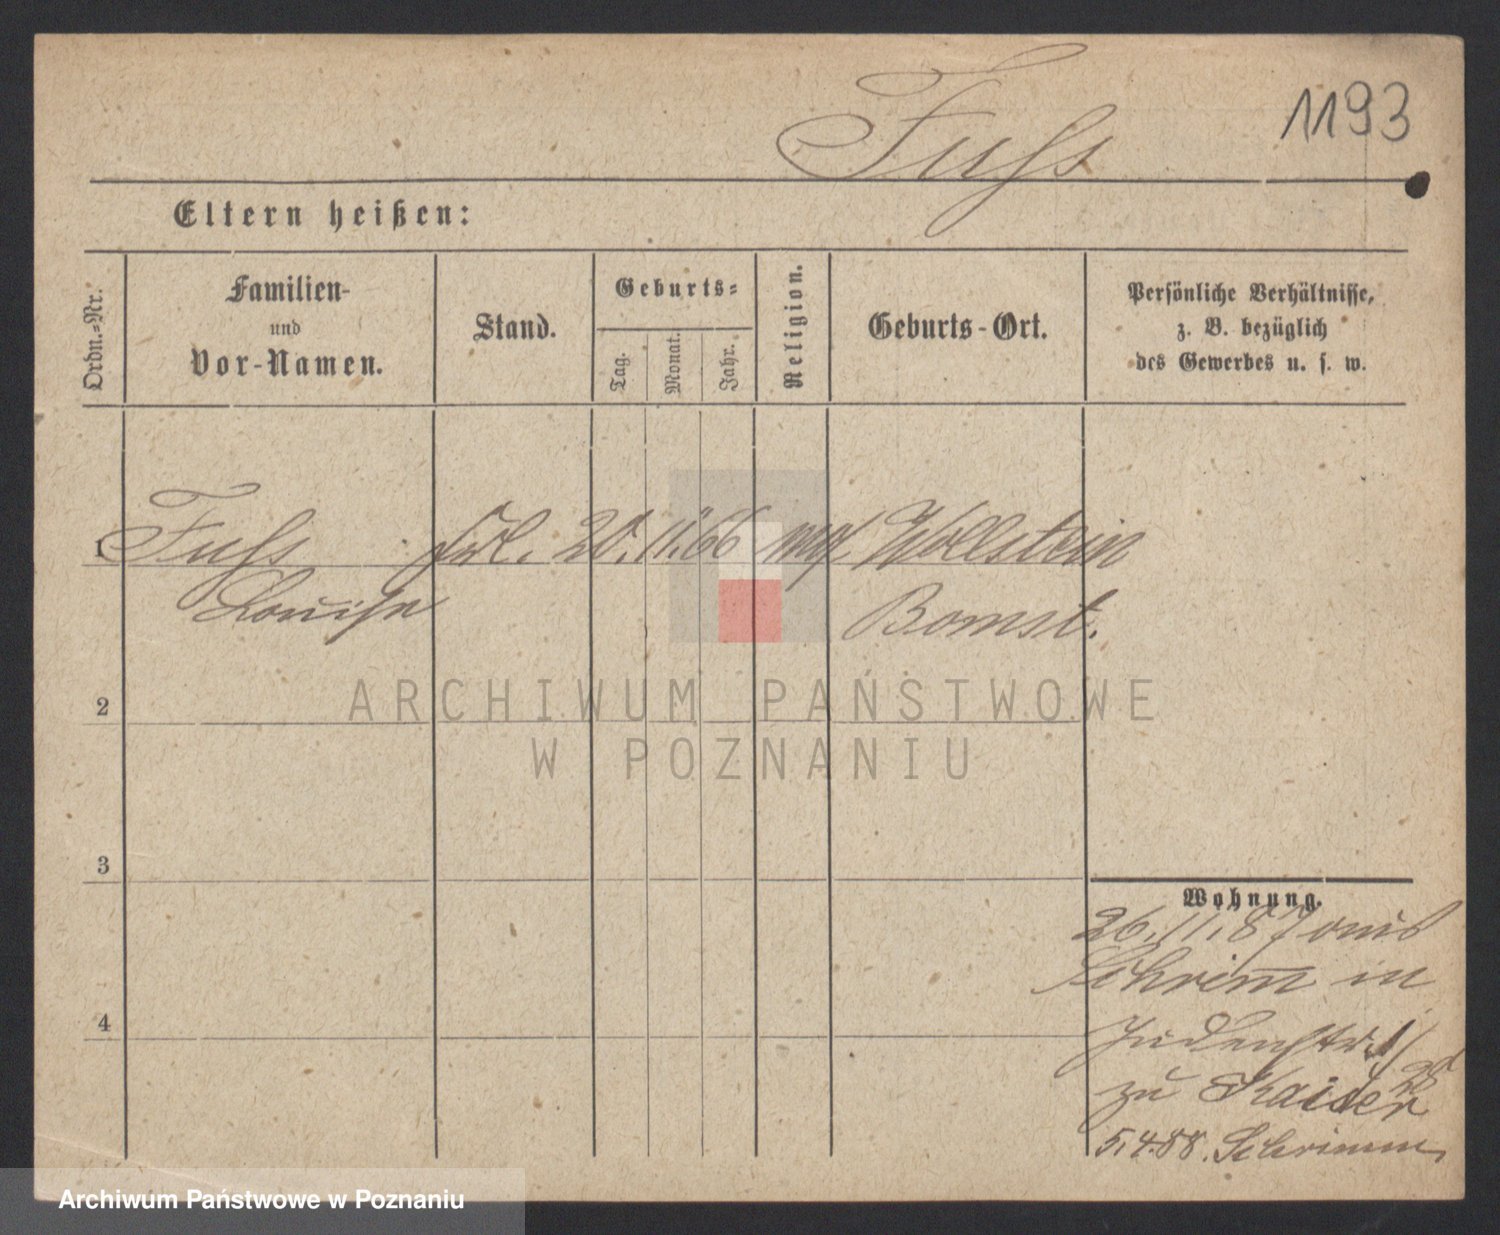 1193
Fuhs
Eltern heißen:
Ordn.-Nr.
Familien-
und
Vor-Namen.
Stand.
Geburts-
Tag.
Monat.
Jahr.
Religion.
Geburts-Ort.
Persönliche Verhältnisse,
z. B. bezüglich
des Gewerbes u. s. w.
1 Fuhs Frl. 20. 11. 66 Wollstein
Louise Bomst.
2
3
4
ARCHIWUM PAŃSTWOWE
W POZNANIU
Wohnung.
26. 11. 87 aus
Schrim in
Judenstr.
zu Kaiser
5.4.88. Schrimm
Archiwum Państwowe w Poznaniu